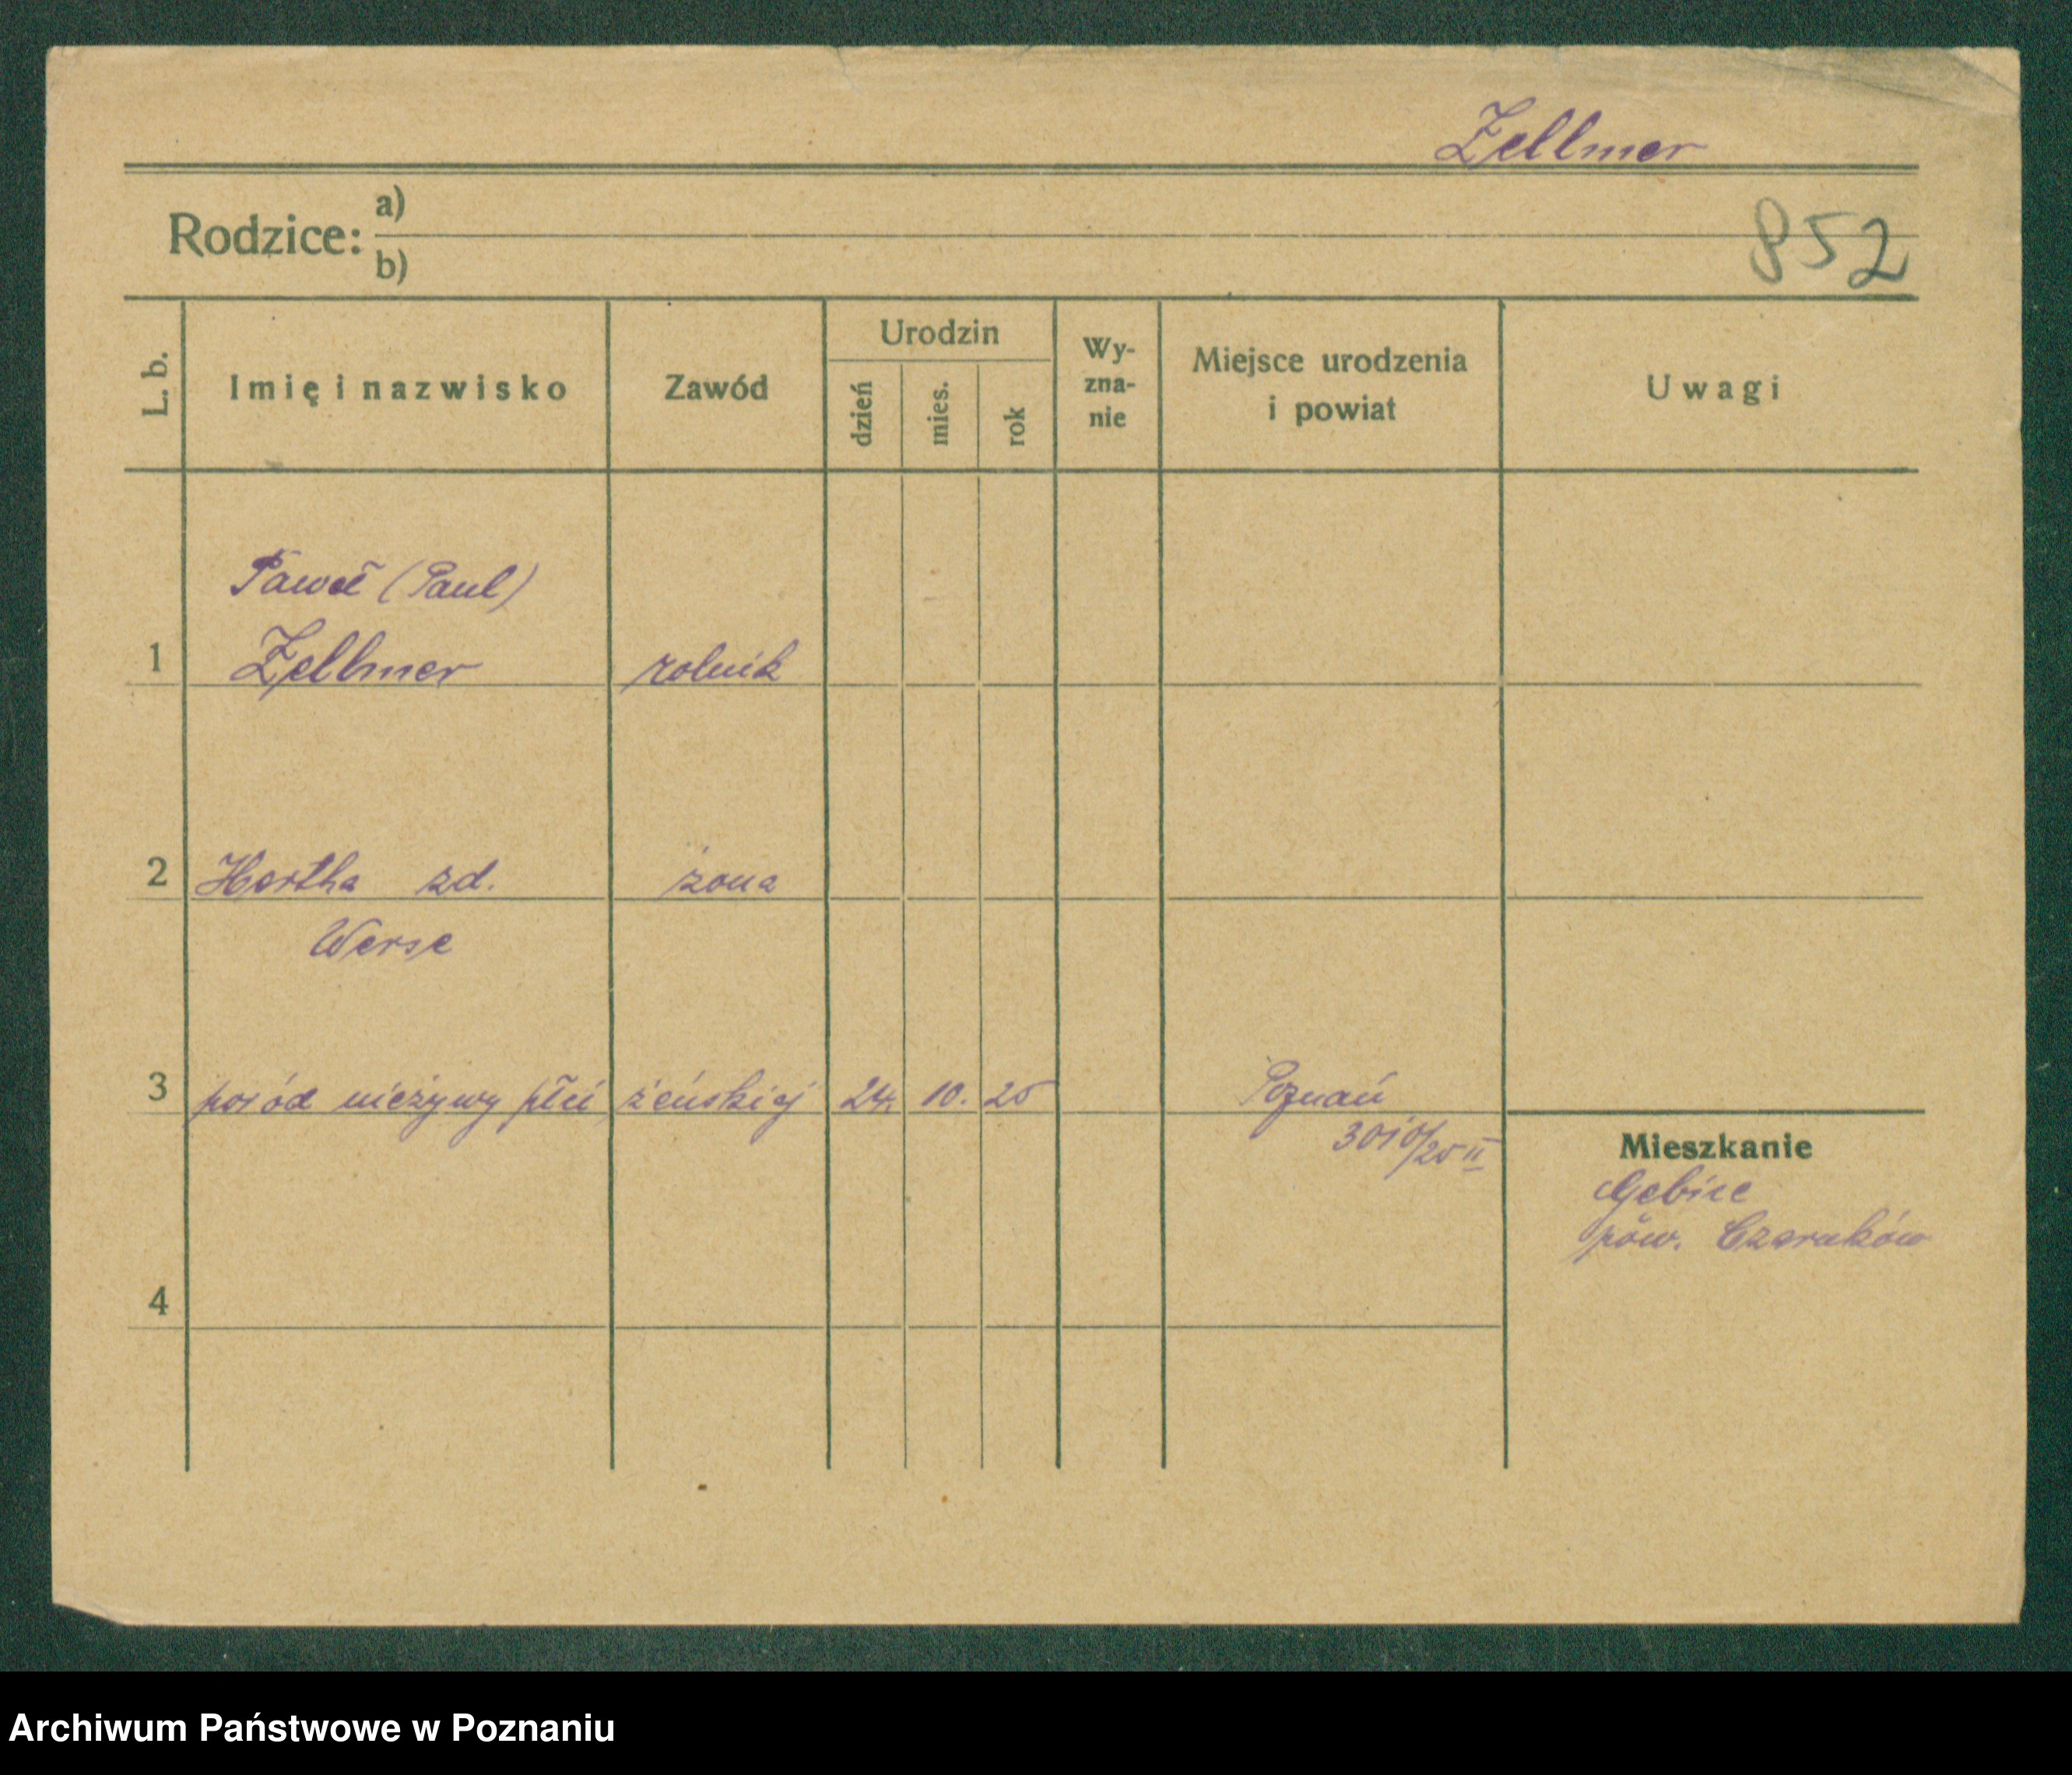 Zellmer
Rodzice: a)
b)
852
L. b. Imię i nazwisko Zawód Urodzin dzień mies. rok Wy-zna-nie Miejsce urodzenia i powiat Uwagi
Paweł (Paul)
1 Zellmer rolnik
2 Hertha zd. żona
Werse
3 poród nieżywy płci żeńskiej 24. 10. 25 Poznań
3010/25 II
Mieszkanie
Gębice
pow. Czarnków
4
Archiwum Państwowe w Poznaniu